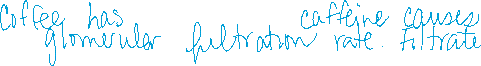 Coffee has caffeine causes
glomerular filtration rate. Filtrate